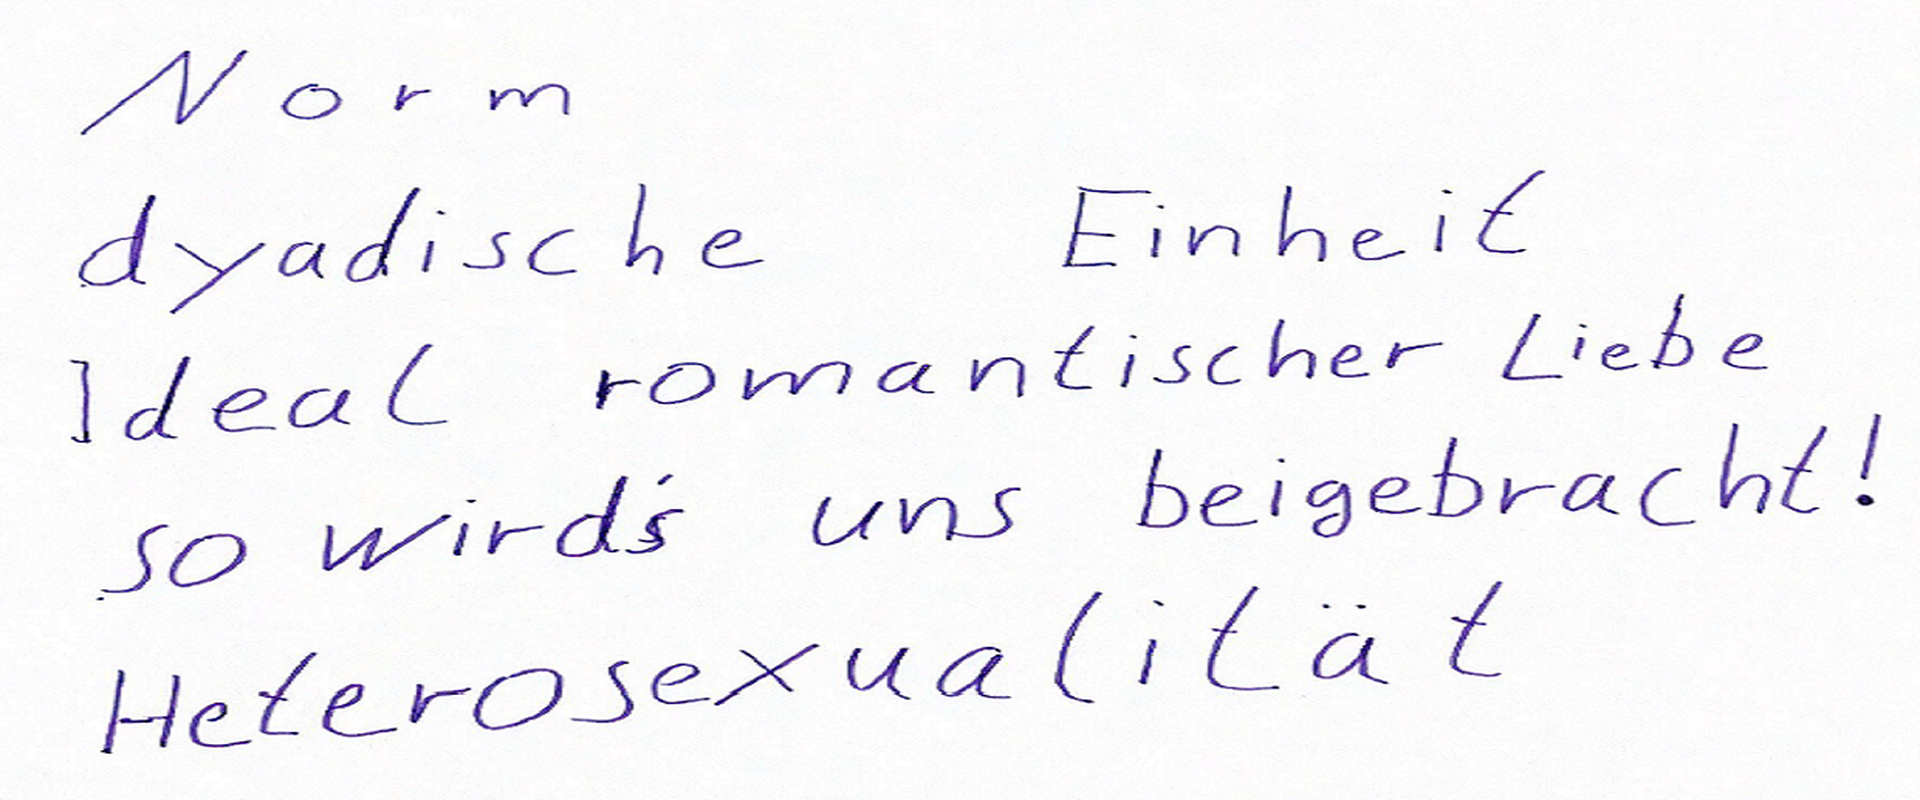 Norm
dyadische Einheit
Ideal romantischer Liebe
so wird's uns beigebracht!
Heterosexualität